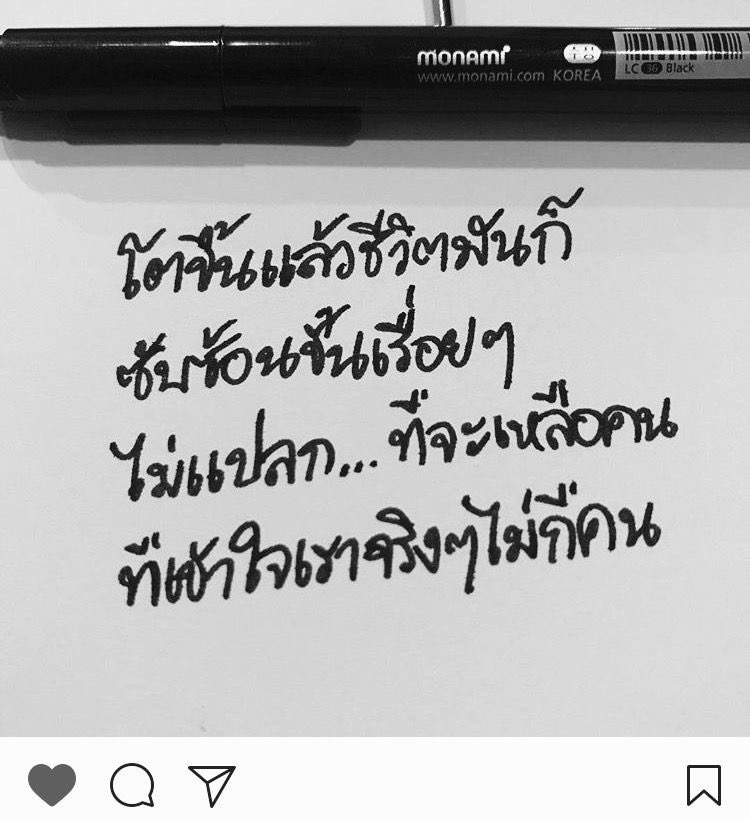 monami
www.monami.com KOREA
LC 36 Black
โตขึ้นแล้วชีวิตมันก็
ซับซ้อนขึ้นเรื่อยๆ
ไม่แปลก... ที่จะเหลือคน
ที่เข้าใจเราจริงๆไม่กี่คน